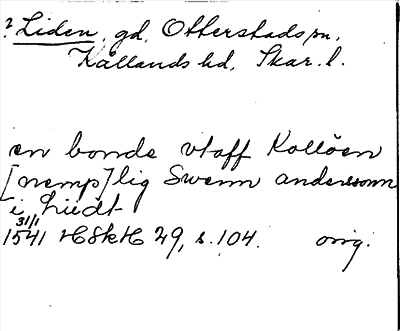 ? Liden, gd, Otterstads sn,
Kållands hd, Skar. l.
en bonde vtaff Kollöen
[nemp]lig Swenn andersson
i Liidt
31/1
1541 HSkH 29, s. 104. orig.